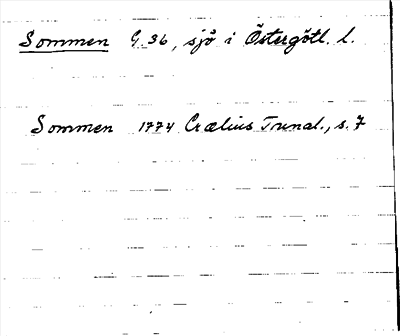 Sommen G. 36, sjö i Östergötl. l.
Sommen 1774 Crælius Tunal., s. 7